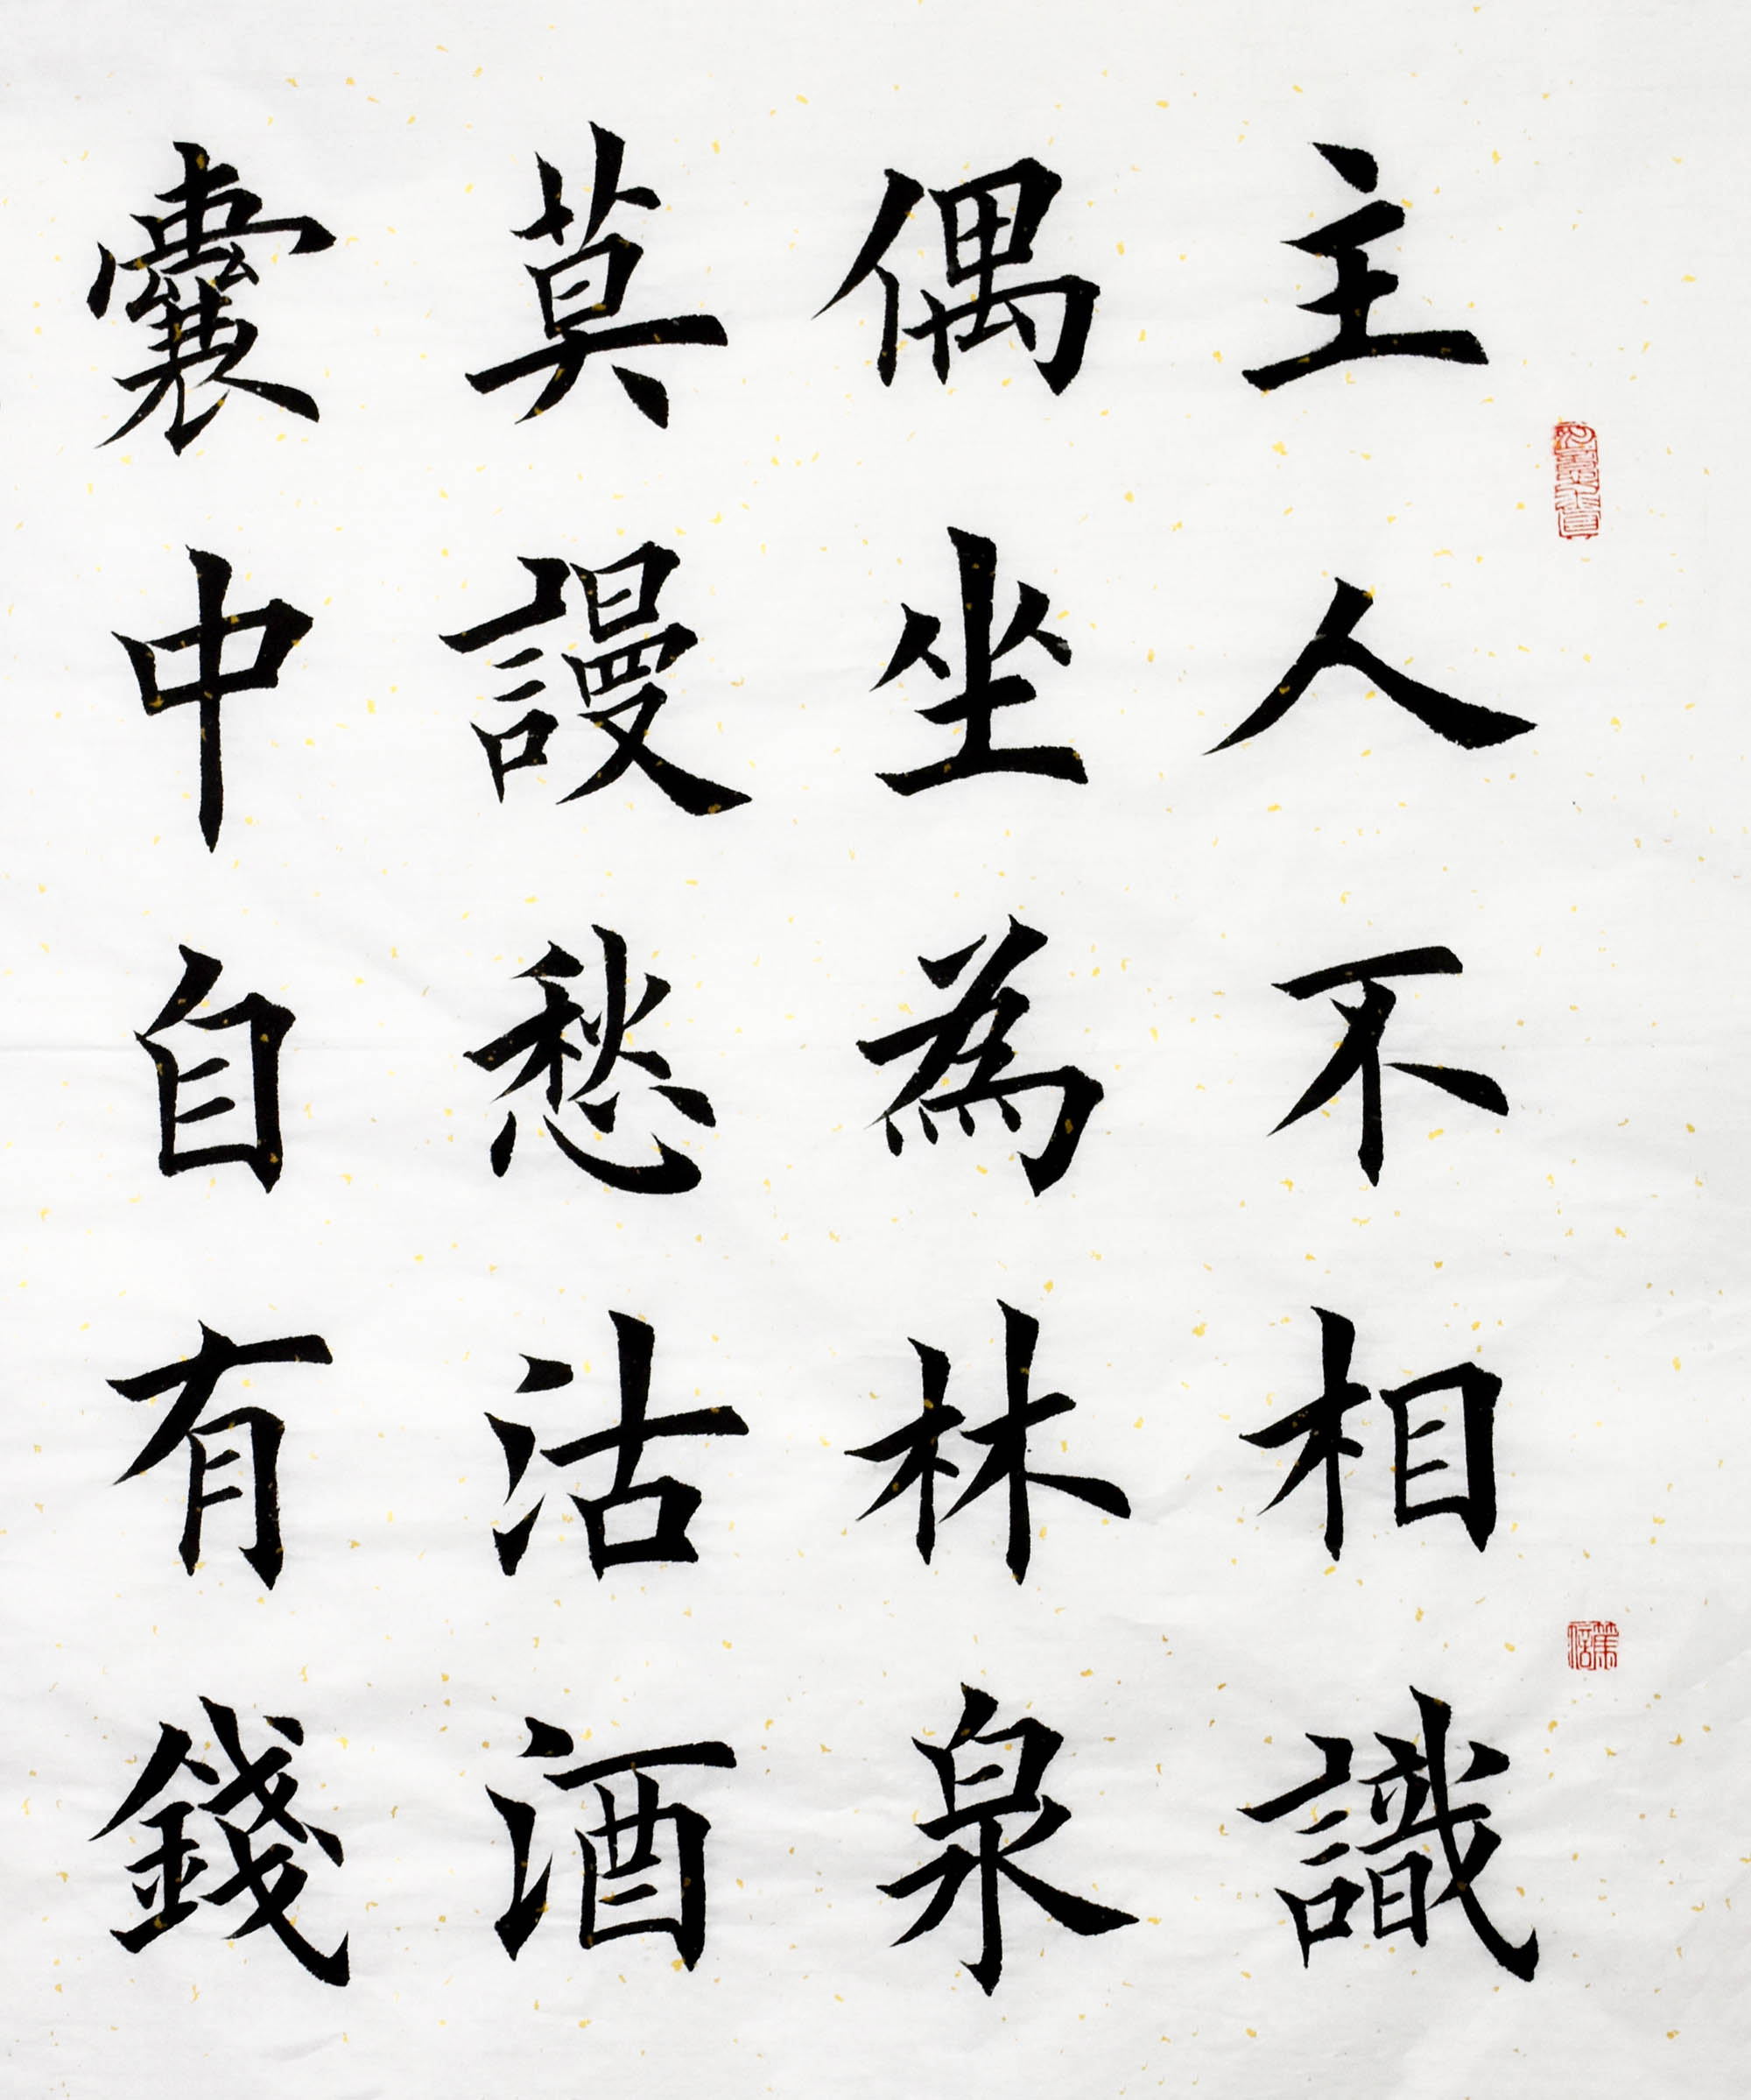 主人不相識
偶坐為林泉
莫謾愁沽酒
囊中自有錢